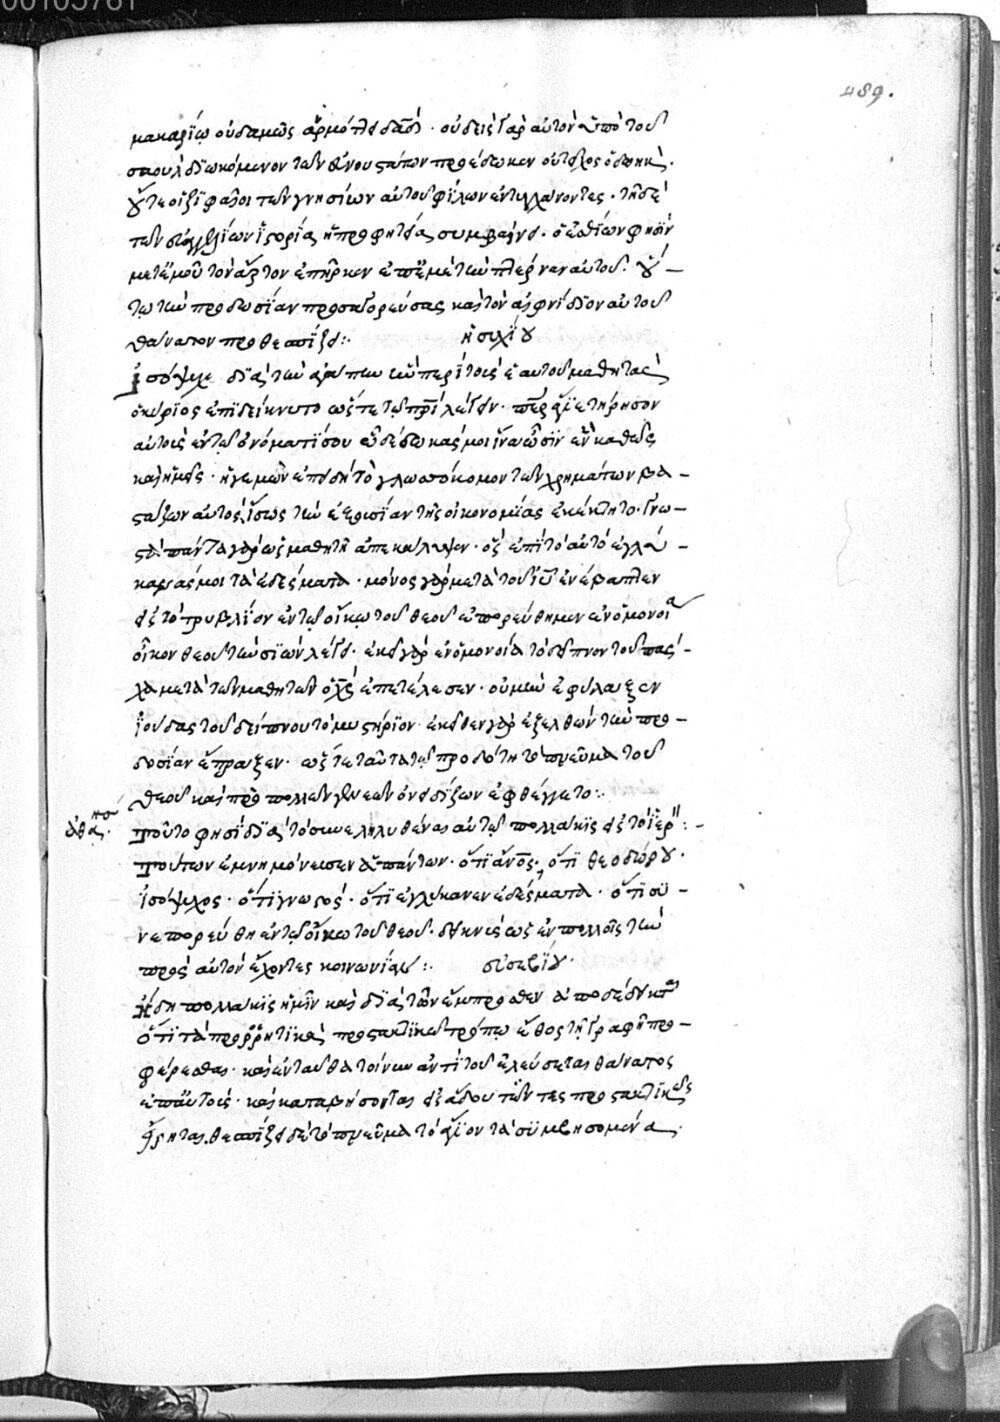 489.
μακαρίῳ οὐδαμῶς ἁρμόττει δαδ. οὐδεὶς γὰρ αὐτὸν ὑπὸ τοῦ
σαοὺλ διωκόμενον τῶν εὐνουστάτων προέδωκεν
οὔτε οἱ ζιφαῖοι τῶν γνησίων αὐτοῦ φίλων ἐντυγχάνοντες. τῇ δὲ
τῶν εὐαγγελίων ἱστορίᾳ ἡ προφητεία συμβαίνει. ὁ ἐσθίων φησὶν
μετ' ἐμοῦ τὸν ἄρτον ἐπῆρκεν ἐπ' ἐμὲ τὴν πτέρναν αὐτοῦ. οὕ-
τω τὴν προδωσίαν προσαγορεύσας καὶ τὸν αἰφνίδιον αὐτοῦ
θάνατον προθεσπίζει:. ἡσυχίου
ἰσόψυχε διὰ τὴν ἀγάπην ἣν περὶ τοὺς ἑαυτοῦ μαθητὰς
ὁ κύριος ἐπιδείκνυτο ὥστε τῷ πρὶ λέγειν. πὲρ ἅγιε τήρησον
αὐτοὺς ἐν τῷ ὀνόματί σου οὓς δέδωκάς μοι ἵνα ὦσιν ἓν καθὼς
καὶ ἡμεῖς. ἡγεμὼν ἐπειδὴ τὸ γλωσσόκομον τῶν χρημάτων βα-
στάζων αὐτὸς ἴσως τὴν ἐξουσίαν τῆς οἰκονομίας ἐκέκτητο. γνω-
στὰ πάντα γὰρ ὡς μαθητῇ ἀπεκάλυψεν. ὃς ἐπὶ τὸ αὐτὸ ἐγλύ-
κανάς μοι τὰ ἐδέσματα. μόνος γὰρ μετὰ τοῦ ιυ ἐνέβαπτεν
εἰς τὸ τρυβλίον ἐν τῷ οἴκῳ τοῦ θεοῦ ἐπορεύθημεν ἐν ὁμονοία
οἶκον θεοῦ τὴν σιὼν λέγει. ἐκεῖ γὰρ ἐν ὁμονοία τὸ δεῖπνον τοῦ πάσ-
χα μετὰ τῶν μαθητῶν ὁ χς ἐπετέλεσεν. οὐ μὴν ἐφύλαξεν
ἰούδας τοῦ δείπνου τὸ μυστήριον. ἐκεῖθεν γὰρ ἐξελθὼν τὴν προ-
δοσίαν ἔπραξεν. ὥστε ταῦτα τῷ προδότῃ τὸ πνεῦμα τοῦ
θεοῦ καὶ πρὸ πολλῶν γενεῶν ὀνειδίζων ἐφθέγγετο:.
ἀθα
τοῦτο φησὶ διὰ τὸ συνεληλυθέναι αὐτῷ πολλάκις εἰς τὸ ἱερ:-
τούτων ἐμνημόνευσεν ἁπάντων. ὅτι ανος. ὅτι θεοδώρου.
ἰσόψυχος. ὅτι γνωστός. ὅτι ἐγλύκανεν ἐδέσματα. ὅτι συ-
νεπορεύθη ἐν τῷ οἴκω τοῦ θεοῦ. δεικνὺς ὡς ἐν πολλοῖς τὴν
πρὸς αὐτὸν ἔχοντες κοινωνίαν:. εὐσεβίου.
ἤδη πολλάκις ἡμῖν καὶ διὰ τῶν ἔμπροσθεν ἀποδέδεικται
ὅτι τὰ προρρητικὰ προστακτικῷ τρόπῳ ἔθος τῇ γραφῇ προ-
φέρεσθαι. καὶ ἐνταῦθα τοίνυν ἀντὶ τοῦ ἐλεύσεται θάνατος
ἐπ' αὐτούς. καὶ καταβήσονται εἰς ἅδου ζῶντες προστακτικῶς
εἴρηται. θεσπίζει δὲ τὸ πνεῦμα τὸ ἅγιον τὰ συμβησόμενα